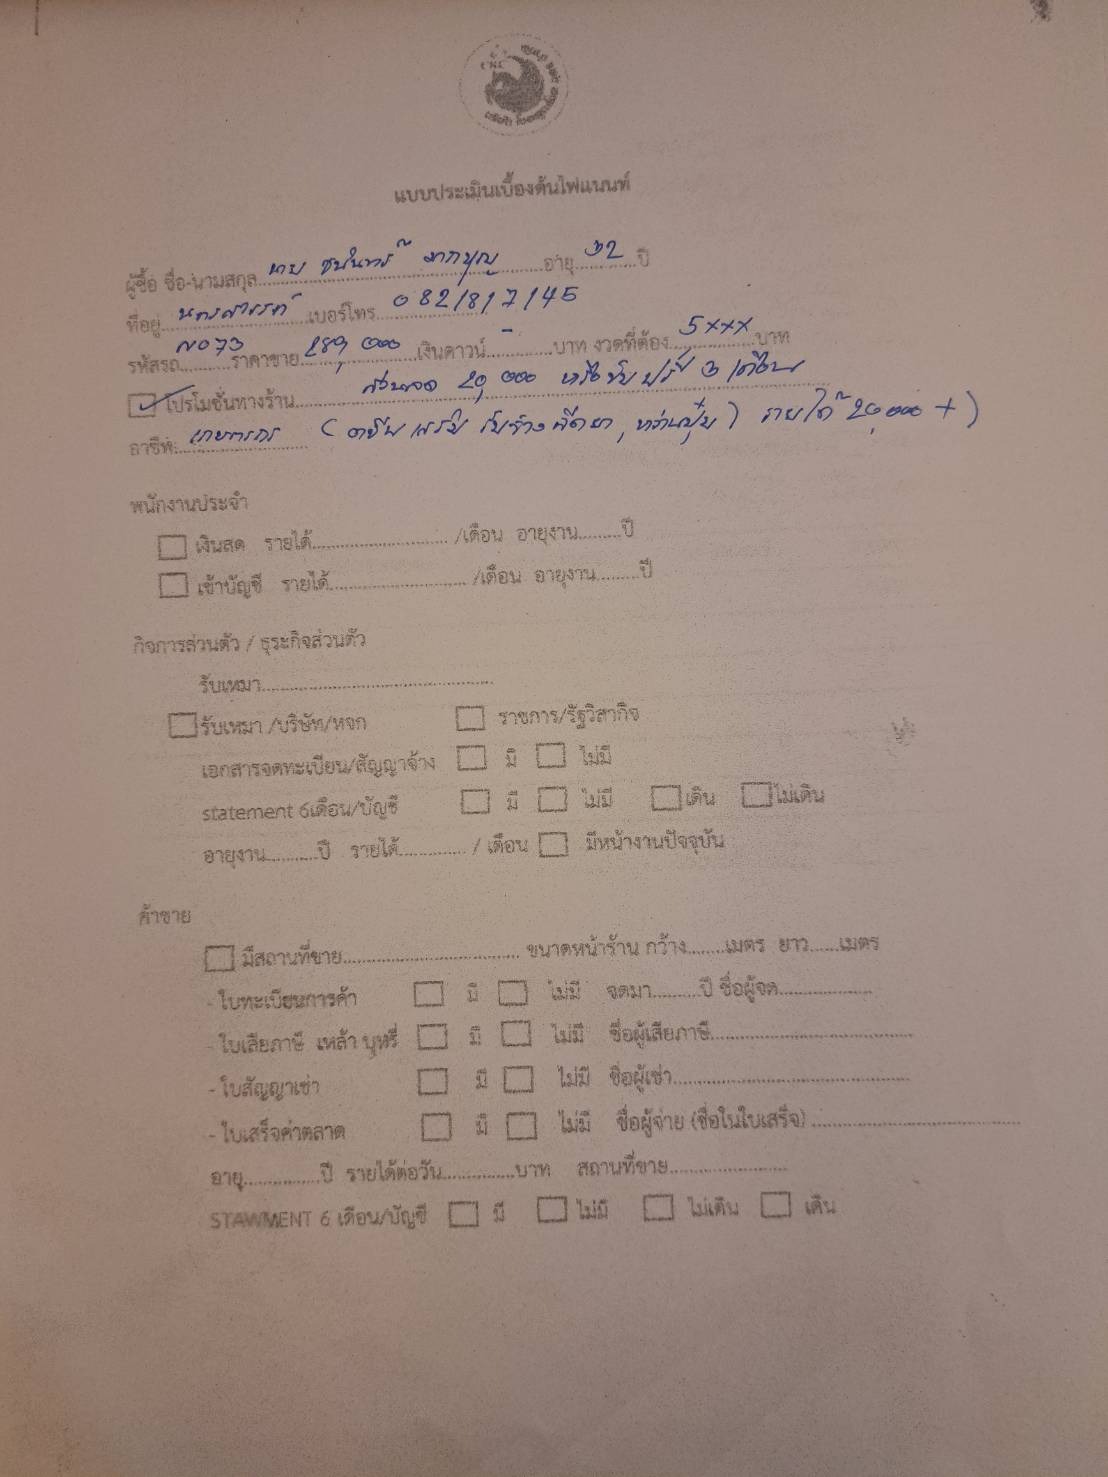 CNC
แบบประเมินเบื้องต้นไฟแนนท์
ผู้ซื้อ ชื่อ-นามสกุล นาย ชนินทร์ มากบุญ อายุ 32 ปี
ที่อยู่ นครสวรรค์ เบอร์โทร 0821817145
รหัสรถ N073 ราคาขาย 289,000 เงินดาวน์ - บาท งวดที่ต้อง 5xxx บาท
โปรโมชั่นทางร้าน ส่วนลด 20,000 หรือขับฟรี 3 เดือน
อาชีพ เกษตรกร (อาชีพเสริม รับจ้างฉีดยา, หว่านปุ๋ย) รายได้ 20,000 +)
พนักงานประจำ
เงินสด รายได้ /เดือน อายุงาน ปี
เข้าบัญชี รายได้ /เดือน อายุงาน ปี
กิจการส่วนตัว / ธุระกิจส่วนตัว
รับเหมา
รับเหมา /บริษัท/หจก ราชการ/รัฐวิสากิจ
เอกสารจดทะเบียน/สัญญาจ้าง มี ไม่มี
statement 6เดือน/บัญชี มี ไม่มี เดิน ไม่เดิน
อายุงาน ปี รายได้ / เดือน มีหน้างานปัจจุบัน
ค้าขาย
มีสถานที่ขาย ขนาดหน้าร้าน กว้าง เมตร ยาว เมตร
- ใบทะเบียนการค้า มี ไม่มี จดมา ปี ชื่อผู้จด
- ใบเสียภาษี เหล้า บุหรี่ มี ไม่มี ชื่อผู้เสียภาษี
- ใบสัญญาเช่า มี ไม่มี ชื่อผู้เช่า
- ใบเสร็จค่าตลาด มี ไม่มี ชื่อผู้จ่าย (ชื่อในใบเสร็จ)
อายุ ปี รายได้ต่อวัน บาท สถานที่ขาย
STAWMENT 6 เดือน/บัญชี มี ไม่มี ไม่เดิน เดิน